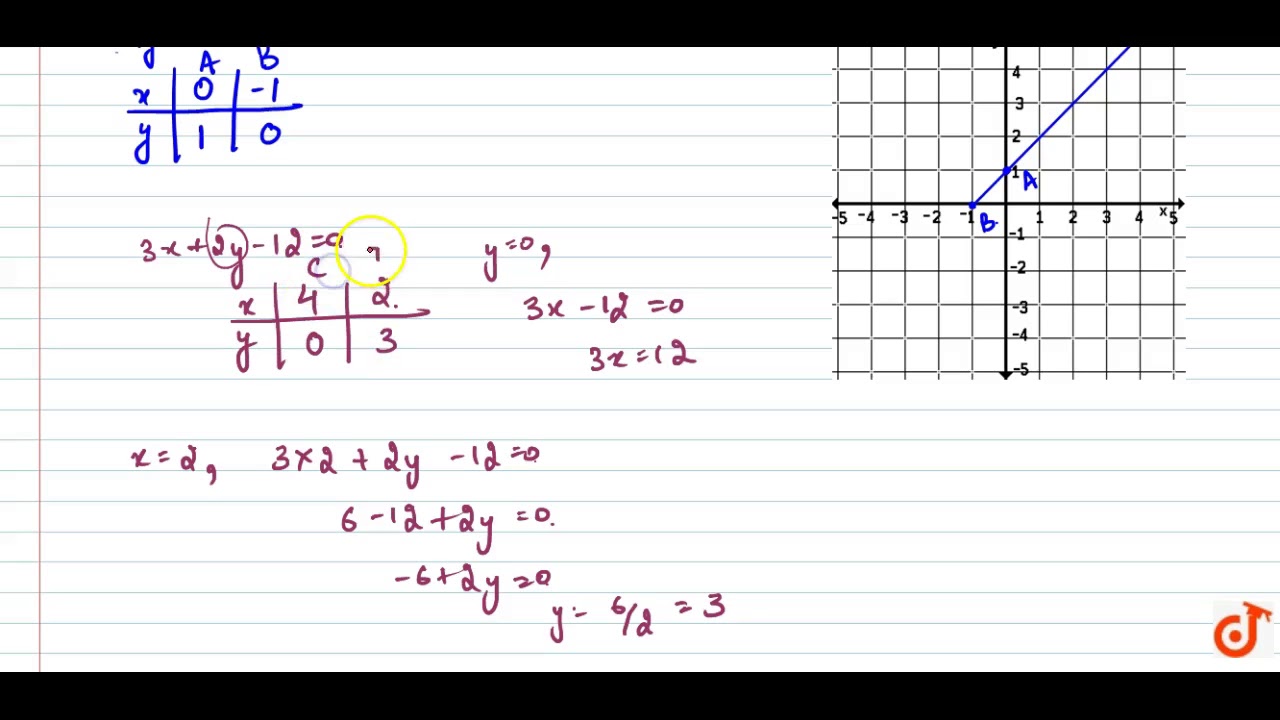 y
A B
x 0 -1
y 1 0
3x+2y-12=0
C
x 4 2.
y 0 3
y=0,
3x-12=0
3x=12
x=2, 3×2+2y-12=0
6-12+2y=0.
-6+2y=0
y= 6/2 = 3
4
3
2
1 A
-5 -4 -3 -2 -1 1 2 3 4 x 5
B
-1
-2
-3
-4
-5